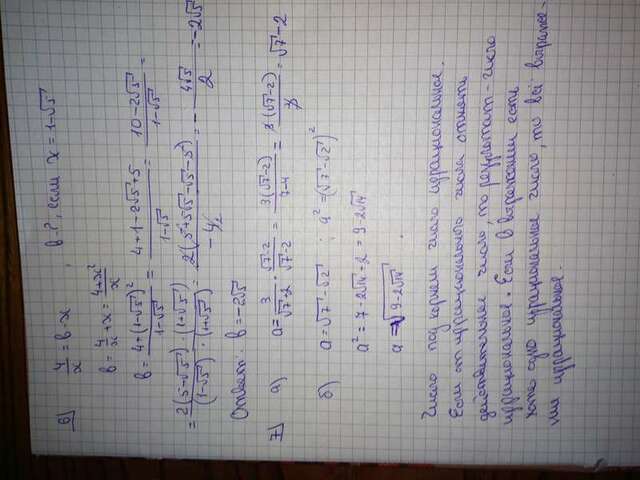 6) 4/x = в - x , в - ?, если x = 1-√5
в = 4/x + x = (4+x²)/x
в = (4+(1-√5)²)/(1-√5) = (4+1-2√5+5)/(1-√5) = (10-2√5)/(1-√5) =
= (2(5-√5)·(1+√5))/((1-√5)·(1+√5)) = (2(5+5√5-√5-5))/(-4) = - 4√5/2 = -2√5
Ответ: в = -2√5
7) а) a = 3/(√7+2) · (√7-2)/(√7-2) = 3(√7-2)/(7-4) = 3(√7-2)/3 = √7-2
б) a = √7 - √2 ; a² = (√7-√2)²
a² = 7-2√14+2 = 9-2√14
a = √(9-2√14) .
Число под корнем число иррациональное.
Если от иррационального числа отнять
действительное число, то результат - число
иррациональное. Если в выражении есть
хотя одно иррациональное число, то всё выраже-
ние иррациональное.